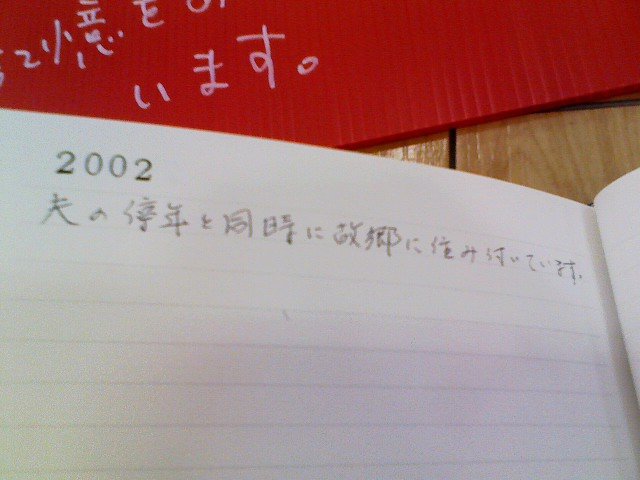 ご注意を
います。
2002
夫の停年と同時に故郷に住み付いています。